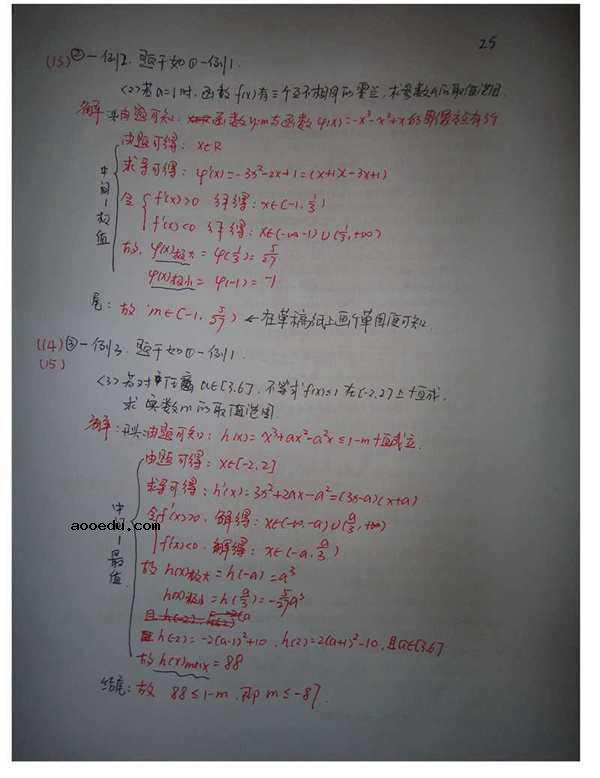 25
(13) ②一例2. 题干如①一例1.
(2)若a=1时,函数f(x)有三个互不相同的零点,求实数m的取值范围
解:头:由题可知: 函数y=m与函数φ(x)=-x³-x²+x的图像交点有3个
由题可得: x∈R
求导可得: φ'(x)=-3x²-2x+1=(x+1)(-3x+1)
令 f'(x)>0 解得: x∈(-1, 1/3)
f'(x)<0 解得: x∈(-∞,-1)∪(1/3,+∞)
故, φ(x)极大=φ(1/3)=5/27
φ(x)极小=φ(-1)=-1
中间—极值
尾: 故 m∈(-1, 5/27) ←在草稿纸上画个草图便可知.
(14) ③一例3. 题干如①一例1.
(15)
(3)若对任意a∈[3,6], 不等式f(x)≤1在[-2,2]上恒成,
求实数m的取值范围
解: 头:由题可知: h(x)=x³+ax²-a²x≤1-m恒成立.
由题可得: x∈[-2,2]
求导可得: h'(x)=3x²+2ax-a²=(3x-a)(x+a)
令f'(x)>0, 解得: x∈(-∞,-a)∪(a/3,+∞)
f'(x)<0, 解得: x∈(-a, a/3)
aooedu.com
中间—最值
故h(x)极大=h(-a)=a³
h(x)极小=h(a/3)=-5/27a³
且h(-2)=-2(a-1)²+10, h(2)=2(a+1)²-10, 且a∈[3,6]
故h(x)max=88
结尾: 故 88≤1-m, 即m≤-87.